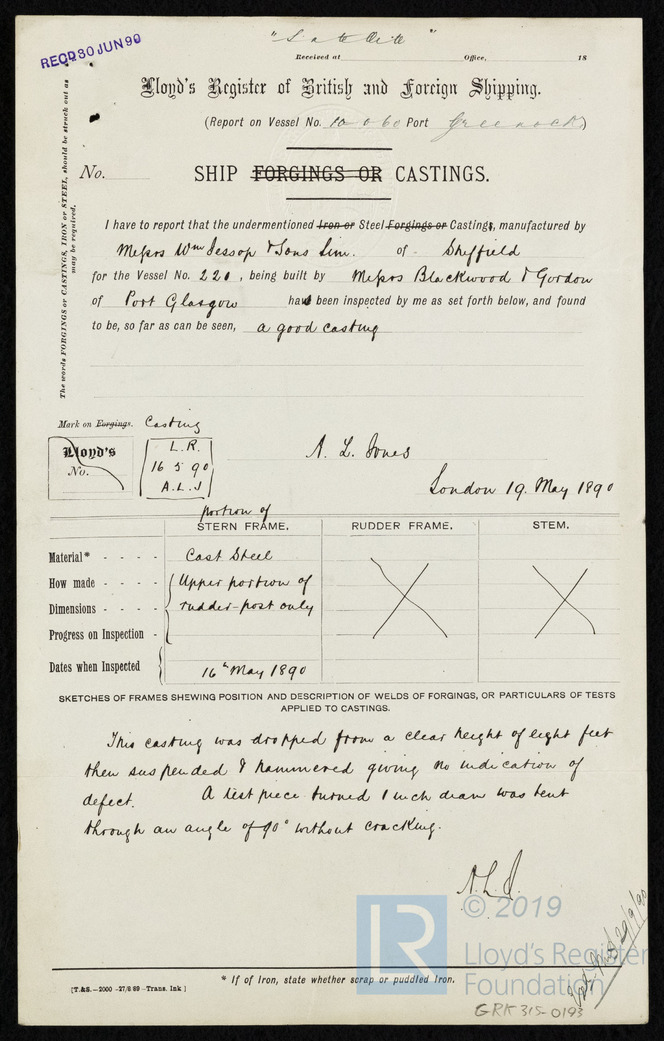 RECD 30 JUN 90
"Satellite"
Received at Office, 18
Lloyd's Register of British and Foreign Shipping.
(Report on Vessel No. 10060 Port Greenock)
The words FORGINGS or CASTINGS, IRON or STEEL, should be struck out as may be required.
No.
SHIP FORGINGS OR CASTINGS.
I have to report that the undermentioned Iron or Steel Forgings or Castings, manufactured by
Messrs Wm Jessop & Sons Lim. of Sheffield
for the Vessel No. 220, being built by Messrs Blackwood & Gordon
of Port Glasgow has been inspected by me as set forth below, and found
to be, so far as can be seen, a good casting
Mark on Forgings. Casting
Lloyd's
No.
L.R.
16 5 90
A.L.J
A. L. Jones
London 19 May 1890
portion of
STERN FRAME. RUDDER FRAME. STEM.
Material* - - - - Cast Steel
How made - - - - Upper portion of
Dimensions - - - - rudder-post only
Progress on Inspection -
Dates when Inspected 16th May 1890
SKETCHES OF FRAMES SHEWING POSITION AND DESCRIPTION OF WELDS OF FORGINGS, OR PARTICULARS OF TESTS
APPLIED TO CASTINGS.
This casting was dropped from a clear height of eight feet
then suspended & hammered giving no indication of
defect. A test piece turned 1 inch diam was bent
through an angle of 90° without cracking.
A.L.J.
LR
© 2019
Lloyd's Register
Foundation
* If of Iron, state whether scrap or puddled Iron.
[T.&S.—2000 -27/8 89 -Trans. Ink]
GRK 315-0193